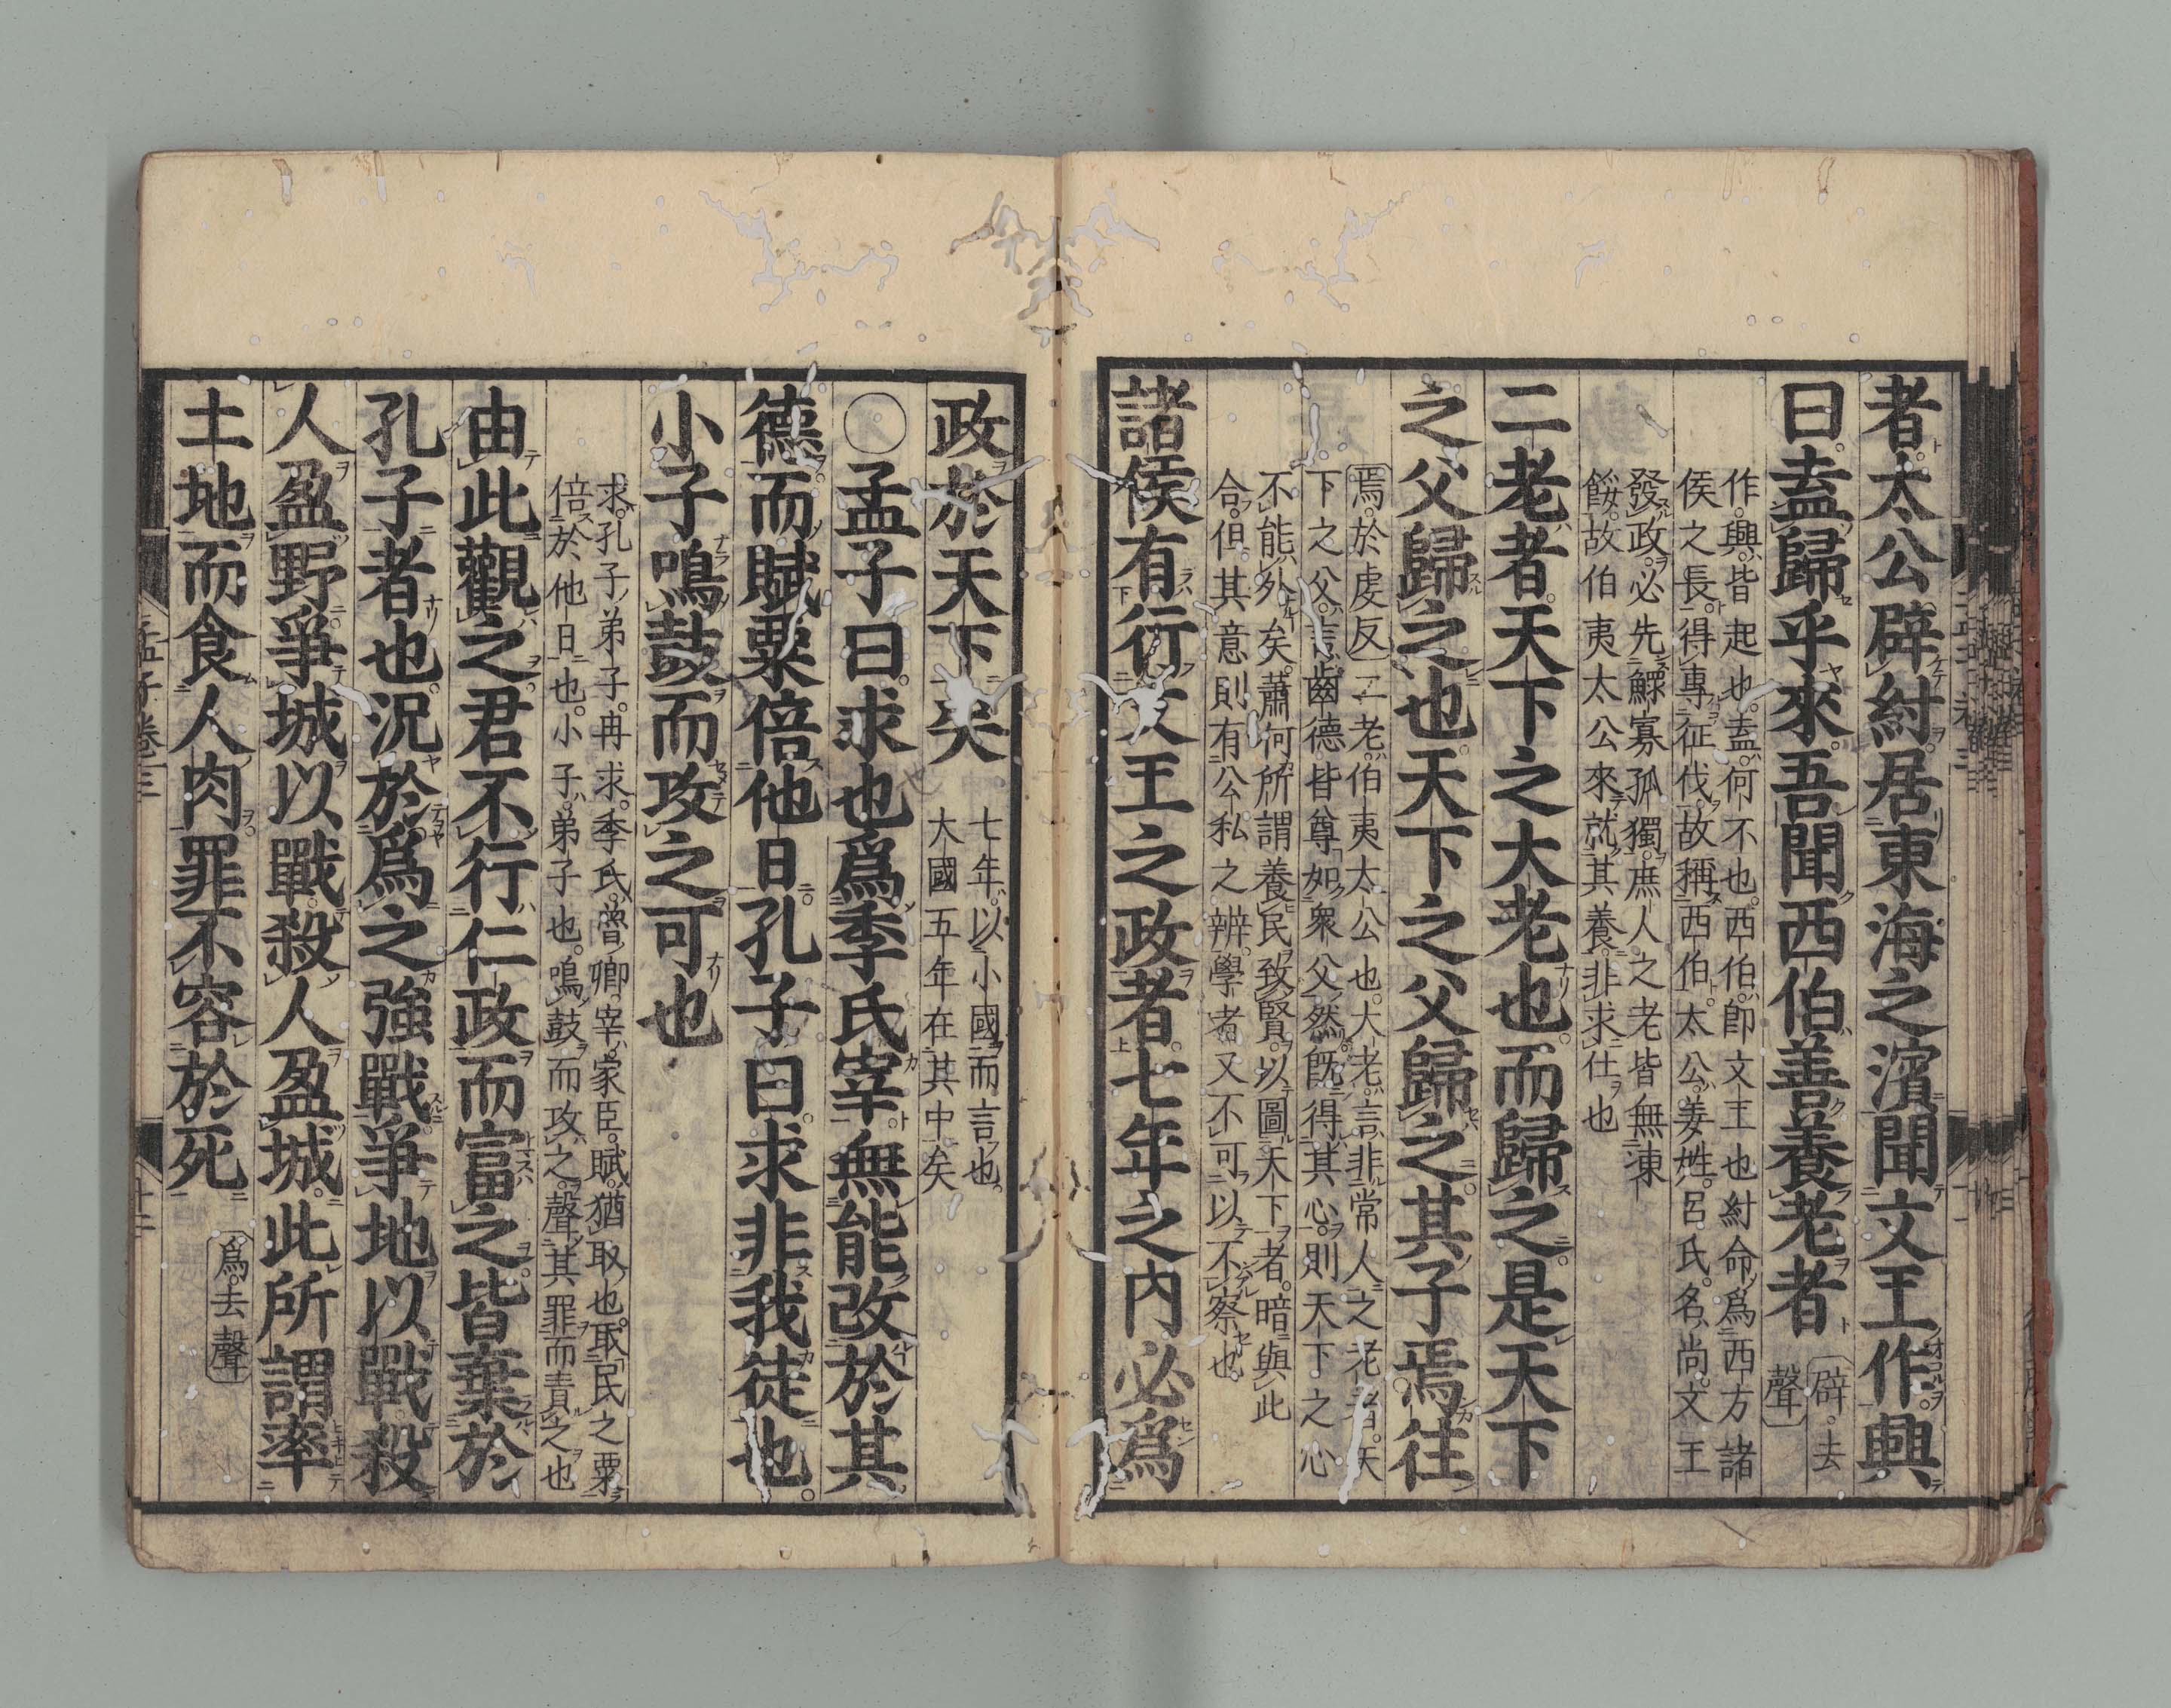 者太公辟紂居東海之濱聞文王作興
曰盍歸乎來吾聞西伯善養老者
辟去
聲
作興皆起也盍何不也西伯卽文王也紂命爲西方諸
侯之長得專征伐故稱西伯太公姜姓呂氏名尚文王
發政必先鰥寡孤獨庶人之老皆無凍
餒故伯夷太公來就其養非求仕也
二老者天下之大老也而歸之是天下
之父歸之也天下之父歸之其子焉往
焉於虔反二老伯夷太公也大老言非常人之老者天
下之父言齒德皆尊如衆父然旣得其心則天下之心
不能外矣蕭何所謂養民致賢以圖天下者暗與此
合但其意則有公私之辨學者又不可以不察也
諸侯有行文王之政者七年之內必爲
政於天下矣
七年以小國而言也
大國五年在其中矣
○孟子曰求也爲季氏宰無能改於其
德而賦粟倍他日孔子曰求非我徒也
小子鳴鼓而攻之可也
求孔子弟子冉求季氏魯卿宰家臣賦猶取也取民之粟
倍於他日也小子弟子也鳴鼓而攻之聲其罪而責之也
由此觀之君不行仁政而富之皆棄於
孔子者也況於爲之強戰爭地以戰殺
人盈野爭城以戰殺人盈城此所謂率
土地而食人肉罪不容於死
爲去聲
孟子卷三